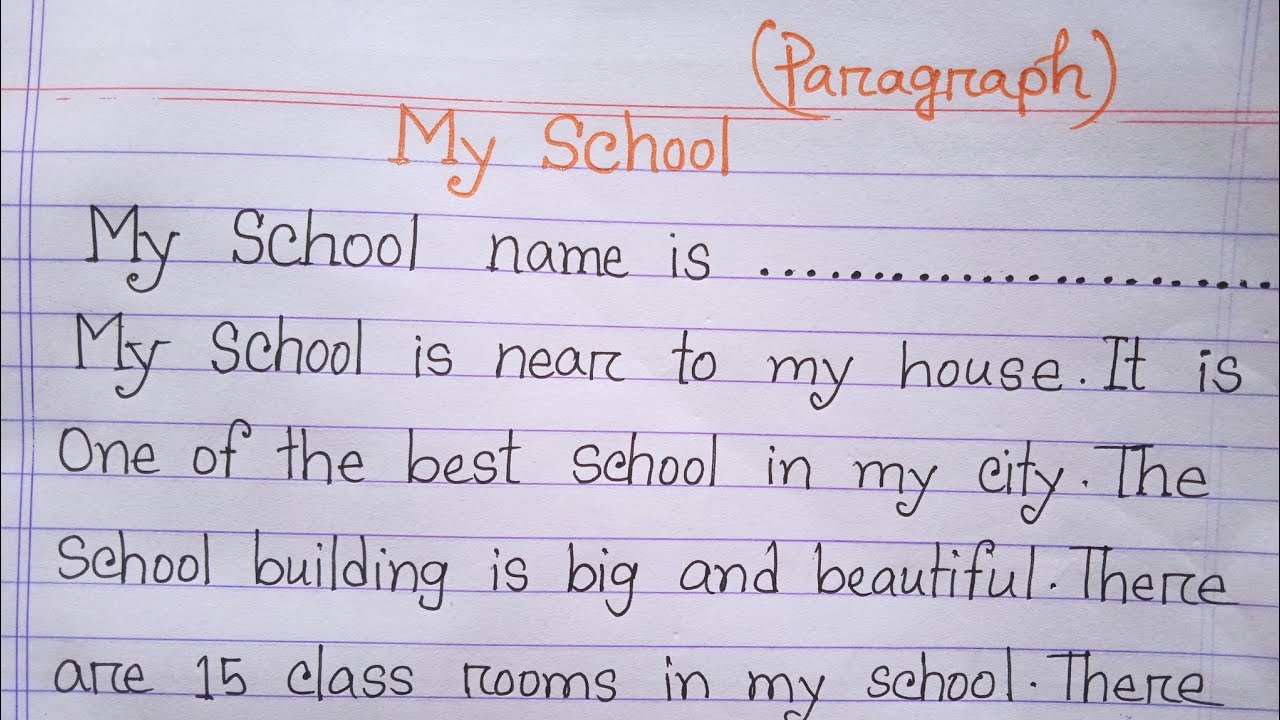 (Paragraph)
My School
My School name is .......................
My School is near to my house. It is
One of the best school in my city. The
School building is big and beautiful. There
are 15 class rooms in my school. There